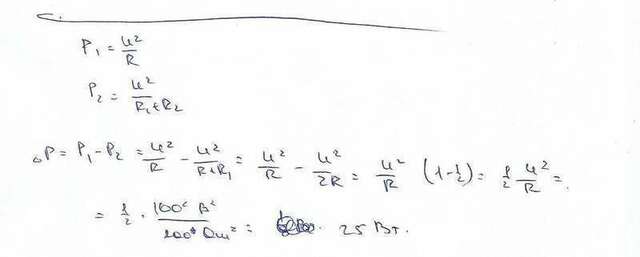 P₁ = U²/R
P₂ = U²/(R₁+R₂)
△P = P₁ - P₂ = U²/R - U²/(R+R₁) = U²/R - U²/2R = U²/R (1-½) = ½ U²/R =
= ½ · 100² В²/ Ом = 25 Вт.